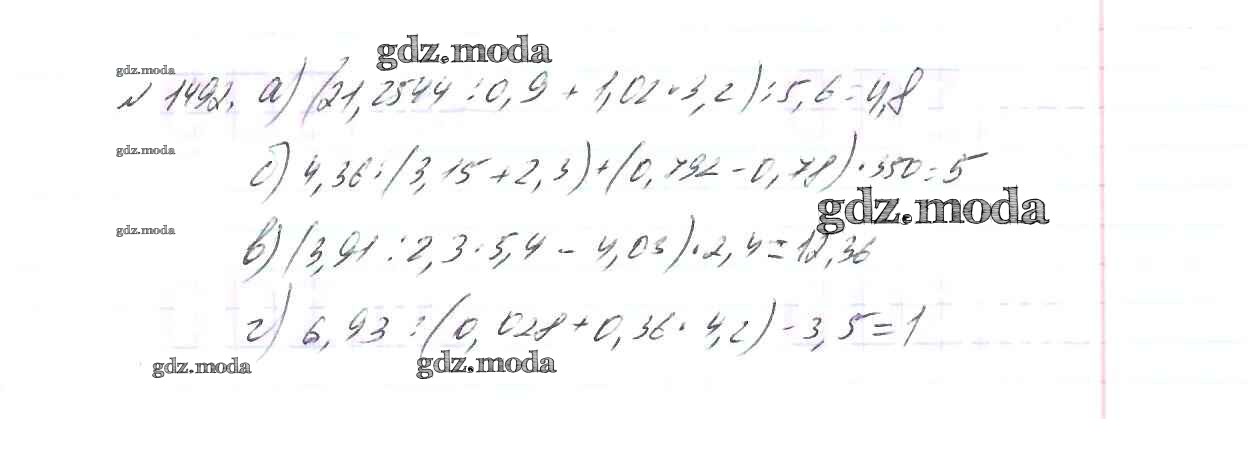 gdz.moda
gdz.moda
№ 1492. а) (21,2544 : 0,9 + 1,02 · 3,2) : 5,6 = 4,8
gdz.moda
б) 4,36 : (3,15 + 2,3) + (0,792 - 0,78) · 350 = 5
gdz.moda
gdz.moda
в) (3,91 : 2,3 · 5,4 - 4,03) · 2,4 = 12,36
г) 6,93 : (0,028 + 0,36 · 4,2) - 3,5 = 1
gdz.moda
gdz.moda